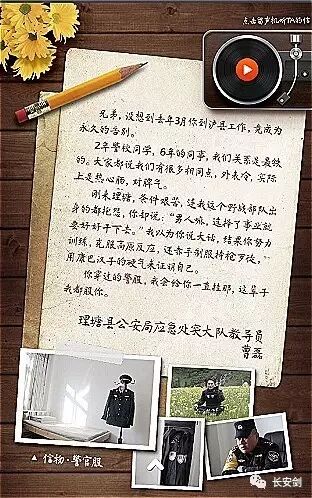 点击留声机听TA的信
兄弟，没想到去年3月你到泸县工作，竟成为
永久的告别。
2年警校同学，6年的同事，我们关系是最铁
的。大家都说我们有很多相同点，外表冷，实际
上是热心肠，对脾气。
刚来理塘，条件艰苦，连我这个野战部队出
身的都抱怨，你却说：“男人嘛，选择了事业就
要好好干下去。”我以为你说大话，结果你努力
训练，克服高原反应，还赤手制服持枪歹徒，
用康巴汉子的硬气来证明自己。
你穿过的警服，我会给你一直挂那，这辈子
我都服你。
理塘县公安局应急处突大队教导员
曹磊
▲ 信物·警官服
长安剑